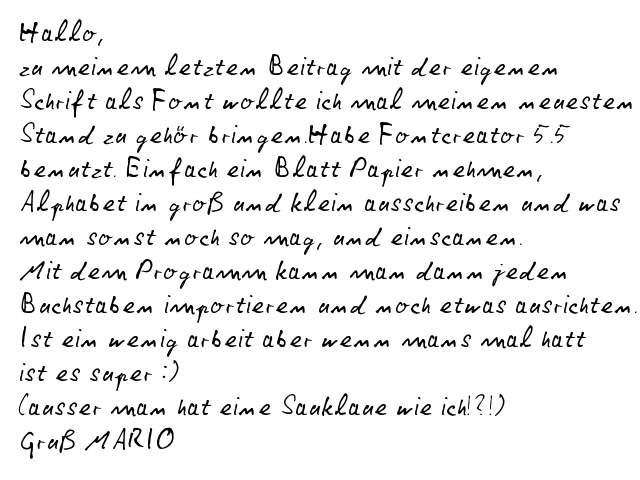 Hallo,
zu meinem letzten Beitrag mit der eigenen
Schrift als Font wollte ich mal meinen neuesten
Stand zu gehör bringen.Habe Fontcreator 5.5
benutzt. Einfach ein Blatt Papier nehmen,
Alphabet in groß und klein ausschreiben und was
man sonst noch so mag, und einscanen.
Mit dem Programm kann man dann jeden
Buchstaben importieren und noch etwas ausrichten.
Ist ein wenig arbeit aber wenn mans mal hatt
ist es super :)
(ausser man hat eine Sauklaue wie ich!?!)
Gruß MARIO